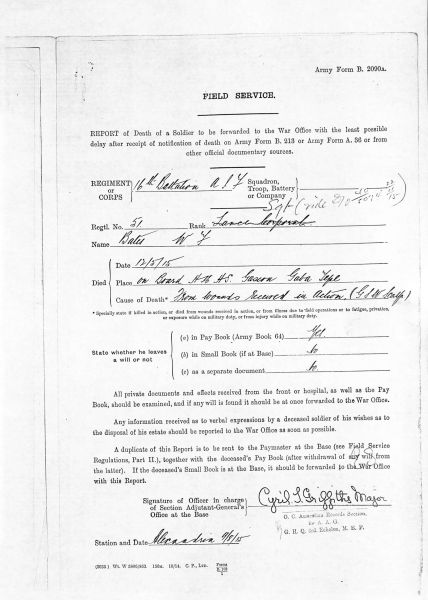 Army Form B. 2090a.
FIELD SERVICE.
REPORT of Death of a Soldier to be forwarded to the War Office with the least possible
delay after receipt of notification of death on Army Form B. 213 or Army Form A. 36 or from
other official documentary sources.
REGIMENT or CORPS } 16th Battalion A I F Squadron, Troop, Battery or Company }
Sgt (vide
Regtl. No. 51. Rank Lance Corporal
Name Bates W F
Died { Date 12/5/15
Place on Board H.M.A.S. Gascon Gaba Tepe
Cause of Death* From wounds received in Action. (G.S.W. Scalp)
* Specially state if killed in action, or died from wounds received in action, or from illness due to field operations or to fatigue, privation,
or exposure while on military duty, or from injury while on military duty.
State whether he leaves a will or not { (a) in Pay Book (Army Book 64) } Yes.
(b) in Small Book (if at Base) } No
(c) as a separate document } No
All private documents and effects received from the front or hospital, as well as the Pay
Book, should be examined, and if any will is found it should be at once forwarded to the War Office.
Any information received as to verbal expressions by a deceased soldier of his wishes as to
the disposal of his estate should be reported to the War Office as soon as possible.
A duplicate of this Report is to be sent to the Paymaster at the Base (see Field Service
Regulations, Part II.), together with the deceased's Pay Book (after withdrawal of any will from
the latter). If the deceased's Small Book is at the Base, it should be forwarded to the War Office
with this Report.
Signature of Officer in charge of Section Adjutant-General's Office at the Base } Cyril T. Griffiths Major
O. C. Australian Records Section,
for A. A. G.
G. H. Q. 2nd Echelon, M. E. F.
Station and Date Alexandria